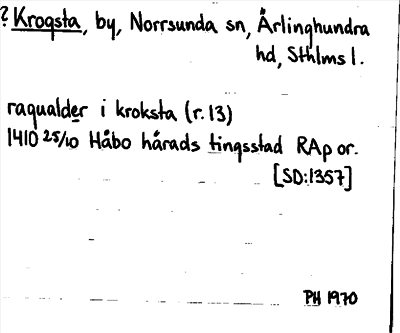 ? Krogsta, by, Norrsunda sn, Ärlinghundra
hd, Sthlms l.
raqualder i kroksta (r. 13)
1410 25/10 Håbo härads tingsstad RAp or.
[SD:1357]
PH 1970